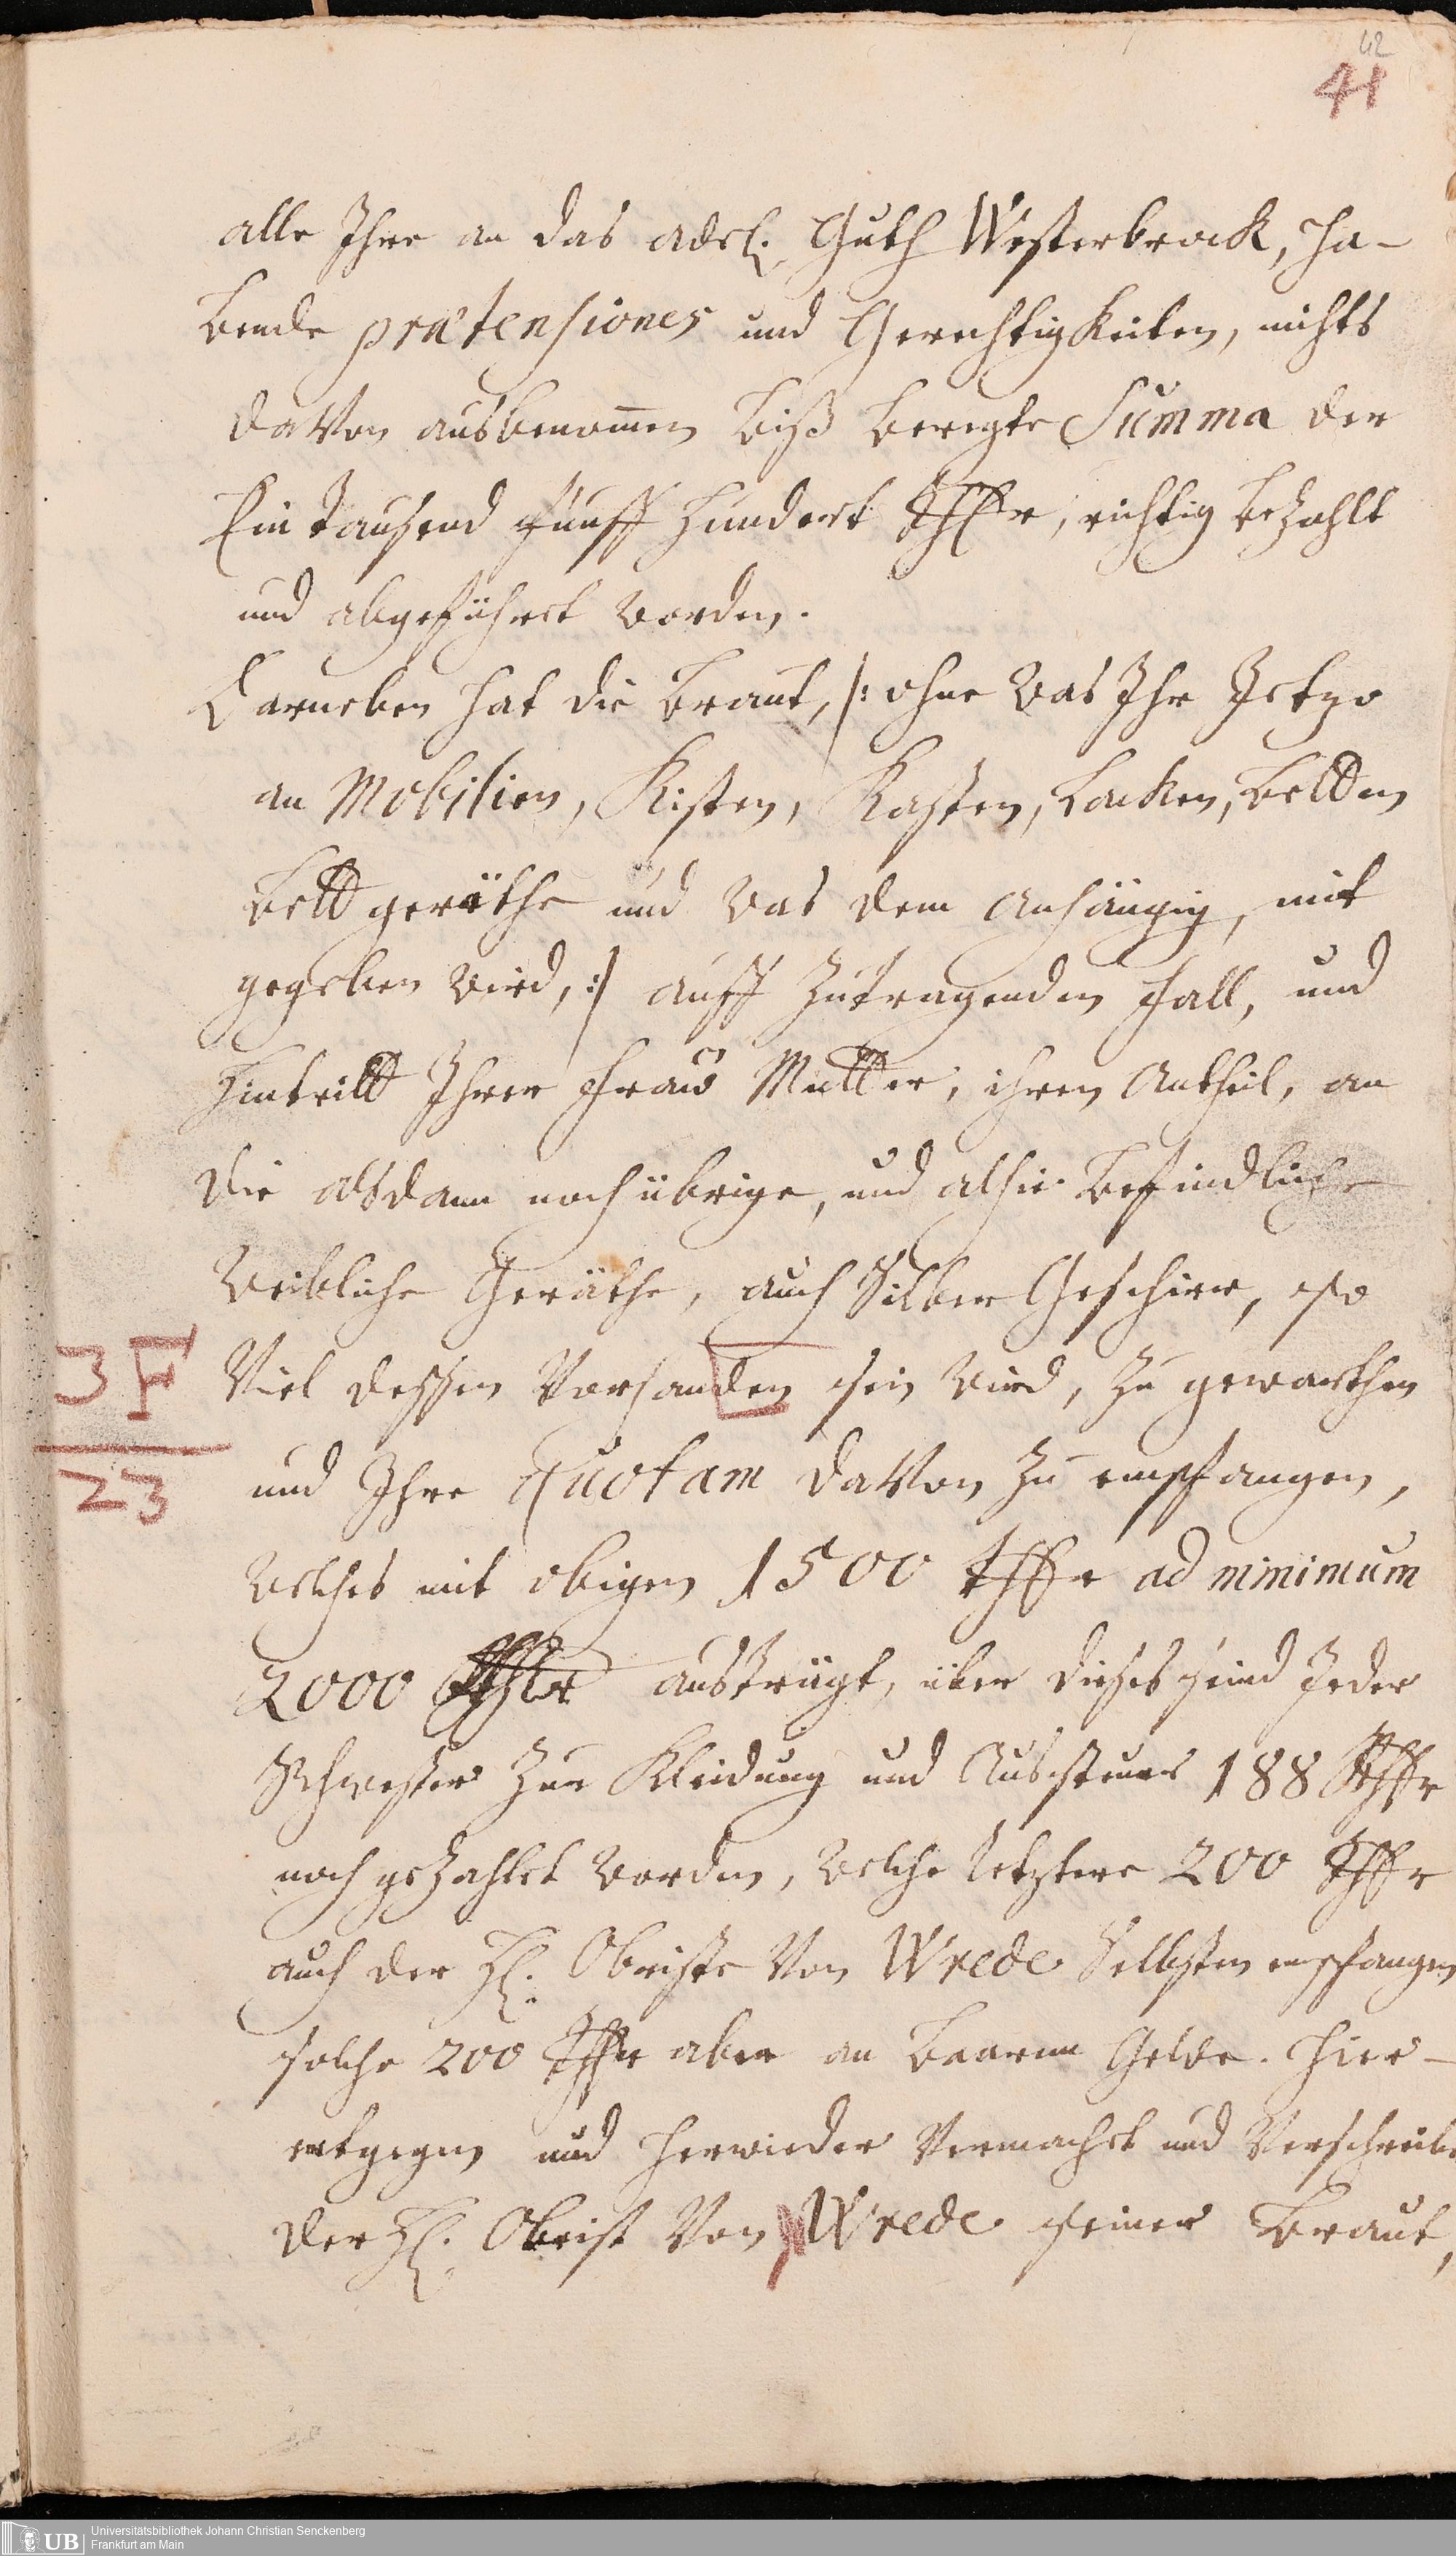 42
41
alle Ihre an das adel. Guth Westerbrack, ha-
bende prætensiones und Gerechtigkeiten, nichts
davon ausbenom̄en biß beregte Summa der
Ein tausend fünff hundert Thlr, richtig bezahlt
und abgeführet worden.
Darneben hat die Braut, /: ohne was Ihr Jetzo
an Mobilien, Kisten, Kasten, Lacken, betten
bettgeräthe und was dem anhängig, mit
gegeben wird, :/ auff zutragenden fall, und
Hintritt Ihrer Fraw Mutter, ihren Antheil, an
die alsdann noch übrige, und alhie befindliche
weibliche Geräthe, auch Silber Geschirr, so
3F
viel dessen vorhanden sein wird, zu gewarthen
23
und Ihre Quotam davon zu empfangen,
welches mit obigen 1500 Thlr ad minimum
2000 Rthlr austrägt, über dieses seind Jeder
Schwester zur Kleidung und Aussteuer 188 Rthlr
noch gezahlet worden, welche letztere 200 Thlr
auch der H. Obriste von Wrede Selbsten empfangen
solche 200 Thlr aber an baarem Gelde. Hier-
entgegen und herwieder vermachet und verschreibe
der H. Obrist von Wrede seiner Braut,
UB
Universitätsbibliothek Johann Christian Senckenberg
Frankfurt am Main